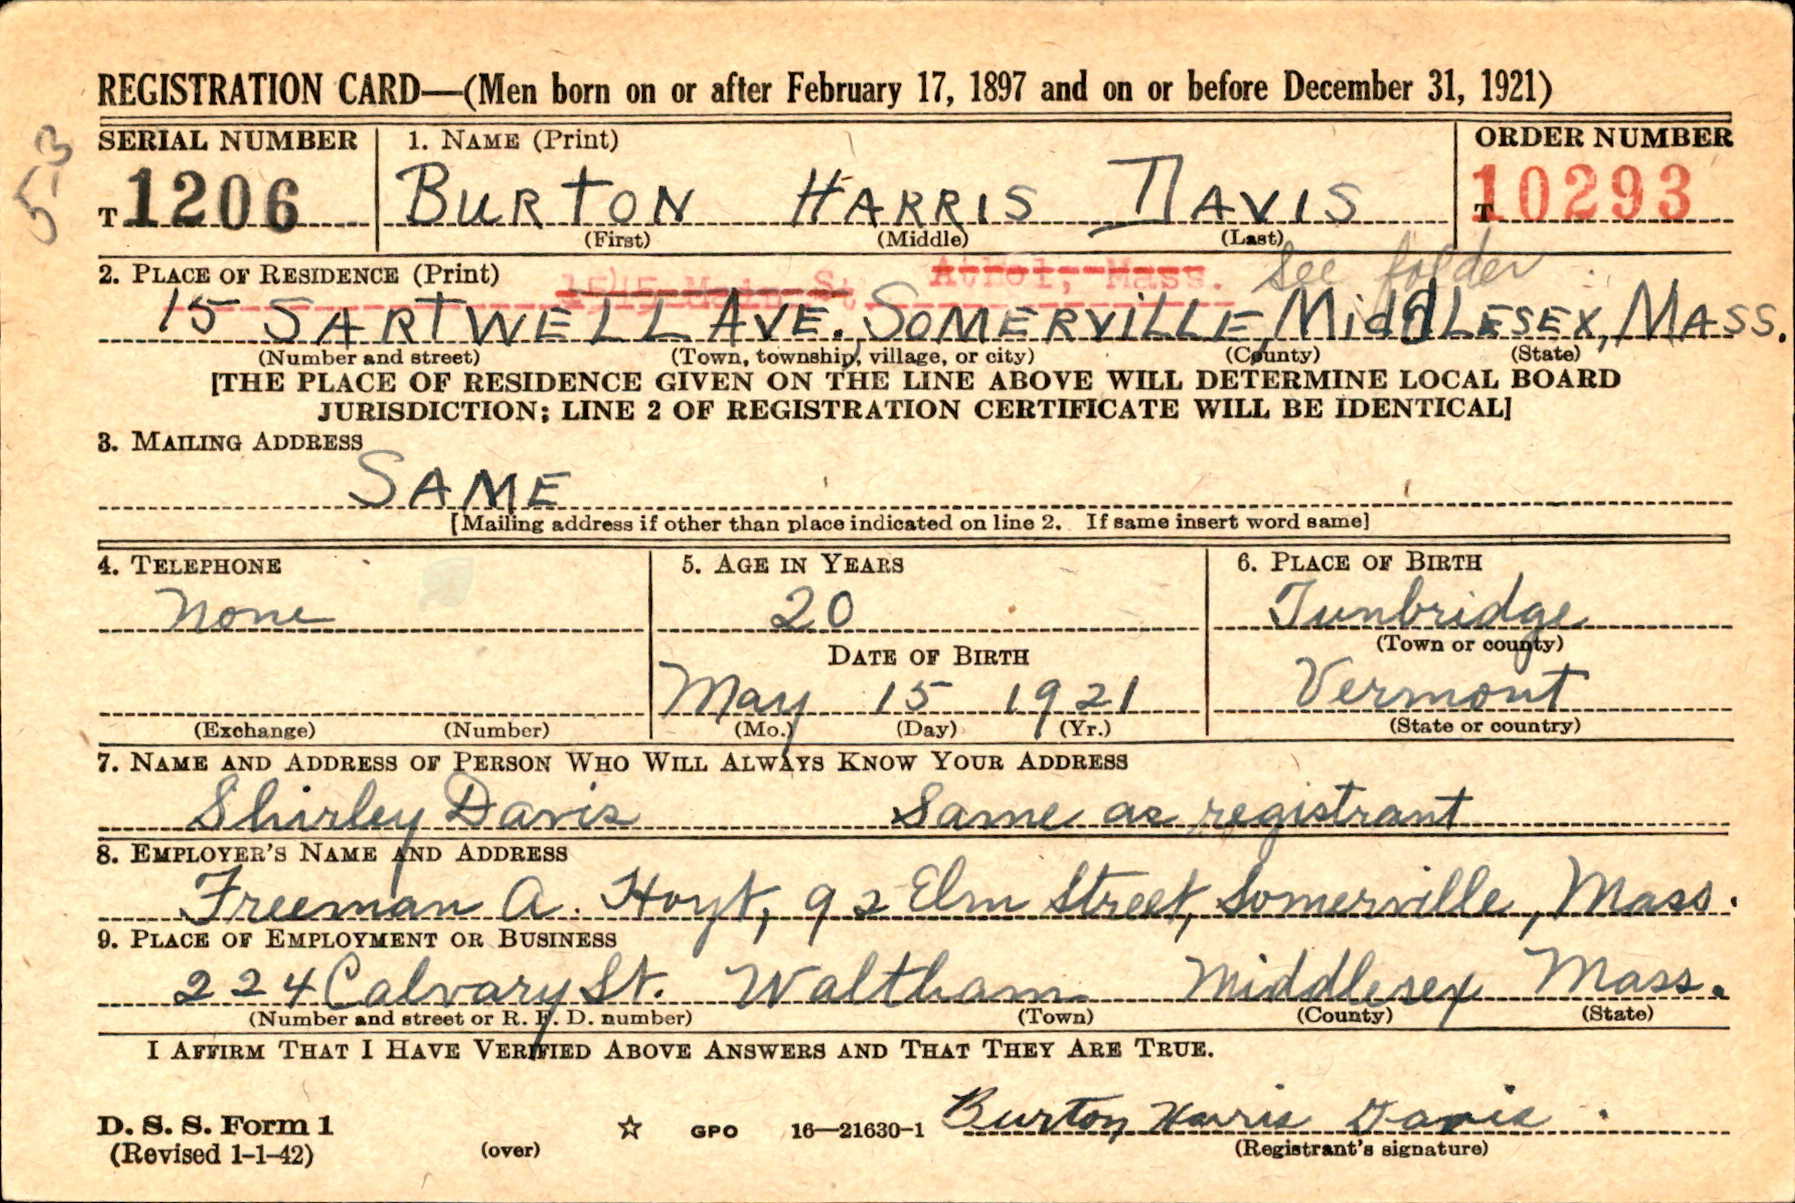 REGISTRATION CARD—(Men born on or after February 17, 1897 and on or before December 31, 1921)
5-3
SERIAL NUMBER 1. NAME (Print) ORDER NUMBER
T 1206 BURTON HARRIS DAVIS T 10293
(First) (Middle) (Last)
2. PLACE OF RESIDENCE (Print) 1515 Main St. Athol, Mass. See folder
15 SARTWELL AVE. SOMERVILLE, MiddLESEX, MASS.
(Number and street) (Town, township, village, or city) (County) (State)
[THE PLACE OF RESIDENCE GIVEN ON THE LINE ABOVE WILL DETERMINE LOCAL BOARD
JURISDICTION; LINE 2 OF REGISTRATION CERTIFICATE WILL BE IDENTICAL]
3. MAILING ADDRESS
SAME
[Mailing address if other than place indicated on line 2. If same insert word same]
4. TELEPHONE 5. AGE IN YEARS 6. PLACE OF BIRTH
None 20 Tunbridge
(Town or county)
DATE OF BIRTH
May 15 1921 Vermont
(Exchange) (Number) (Mo.) (Day) (Yr.) (State or country)
7. NAME AND ADDRESS OF PERSON WHO WILL ALWAYS KNOW YOUR ADDRESS
Shirley Davis Same as registrant
8. EMPLOYER'S NAME AND ADDRESS
Freeman A. Hoyt, 92 Elm Street, Somerville, Mass.
9. PLACE OF EMPLOYMENT OR BUSINESS
224 Calvary St. Waltham Middlesex Mass.
(Number and street or R. F. D. number) (Town) (County) (State)
I AFFIRM THAT I HAVE VERIFIED ABOVE ANSWERS AND THAT THEY ARE TRUE.
D. S. S. Form 1 ☆ GPO 16—21630-1 Burton Harris Davis
(Revised 1-1-42) (over) (Registrant's signature)